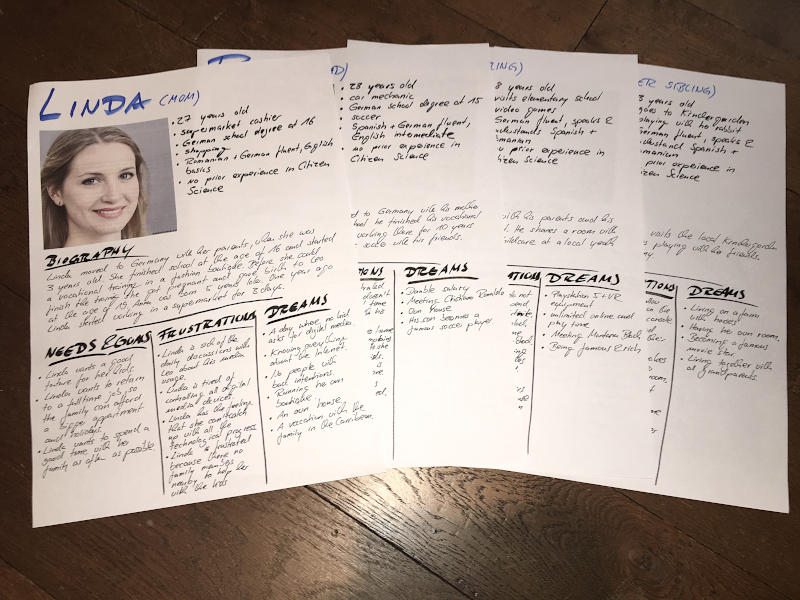 LINDA (MOM)
27 years old
supermarket cashier
German school degree at 16
shopping
Romanian + German fluent, English
basics
no prior experience in Citizen
Science
BIOGRAPHY
Linda moved to Germany with her parents, when she was
3 years old. She finished school at the age of 16 and started
a vocational training in a fashion boutique. Before she could
finish the training she got pregnant and gave birth to Leo
at the age of 19. Anna was born 5 years late. One year ago
Linda started working in a supermarket for 3 days.
NEEDS & GOALS
Linda wants a good
future for her kids.
Linda wants to return
to a full time job, so
the family can afford
a bigger appartment
and holidays.
Linda wants to spend a
good time with her
family as often as possible.
FRUSTRATIONS
Linda is sick of the
daily discussions with
Leo about his media
usage.
Linda is tired of
controlling all digital
media devices.
Linda has the feeling
that she can't catch
up with all the
technological progress
Linda is frustrated
because there no
family members
nearby to help her
with the kids
DREAMS
A day where no kid
asks for digital media.
Knowing everything
about the Internet.
No people with
bad intentions.
Running her own
boutique.
An own house.
A vacation with the
family in the Carribean.
28 years old
car mechanic
German school degree at 15
soccer
Spanish + German fluent,
English intermediate
no prior experience in
Citizen Science
to Germany with his mother
he finished his vocational
working there for 10 years
soccer with his friends.
DREAMS
Double salary
Meeting Christiano Ronaldo
Own House
His son becomes a
famous soccer player
8 years old
visits elementary school
video games
German fluent, speaks &
understands Spanish +
no prior experience in
Citizen Science
with his parents and his
He shares a room with
at a local youth
DREAMS
Playstation 5 + VR
equipment
unlimited online and
play time
Meeting Montana Black
Being famous & rich
SIBLING)
3 years old
goes to Kindergarden
playing with her rabbit
German fluent, speaks &
understand Spanish +
no prior experience in
Citizen Science
visits the local Kindergarden
playing with his friends.
DREAMS
Living on a farm
with horses
Having her own room.
Becoming a famous
movie star
Living together with
all grandparents.